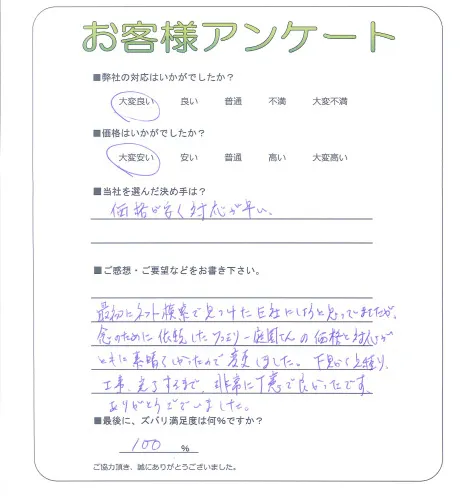 お客様アンケート
■弊社の対応はいかがでしたか？
大変良い 良い 普通 不満 大変不満
■価格はいかがでしたか？
大変安い 安い 普通 高い 大変高い
■当社を選んだ決め手は？
価格が安く対応が早い、
■ご感想・ご要望などをお書き下さい。
最初にネット検索で見つけたE社にしようと思っていましたが、
念のために依頼した ファミリー庭園さんの価格と対応が
ともに素晴しかったので変更しました。下見から見積り、
工事、完了するまで、非常に丁寧で良かったです。
ありがとうございました。
■最後に、ズバリ満足度は何%ですか？
100 %
ご協力頂き、誠にありがとうございました。